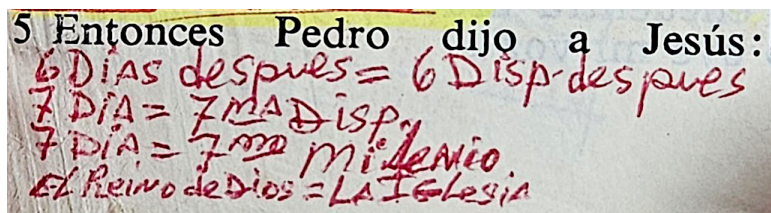 5 Entonces Pedro dijo a Jesús:
6 DíAs despues = 6 Disp. despues
7 DíA = 7MA Disp.
7 DíA = 7mo Milenio
El Reino de Dios = LA IGlesiA